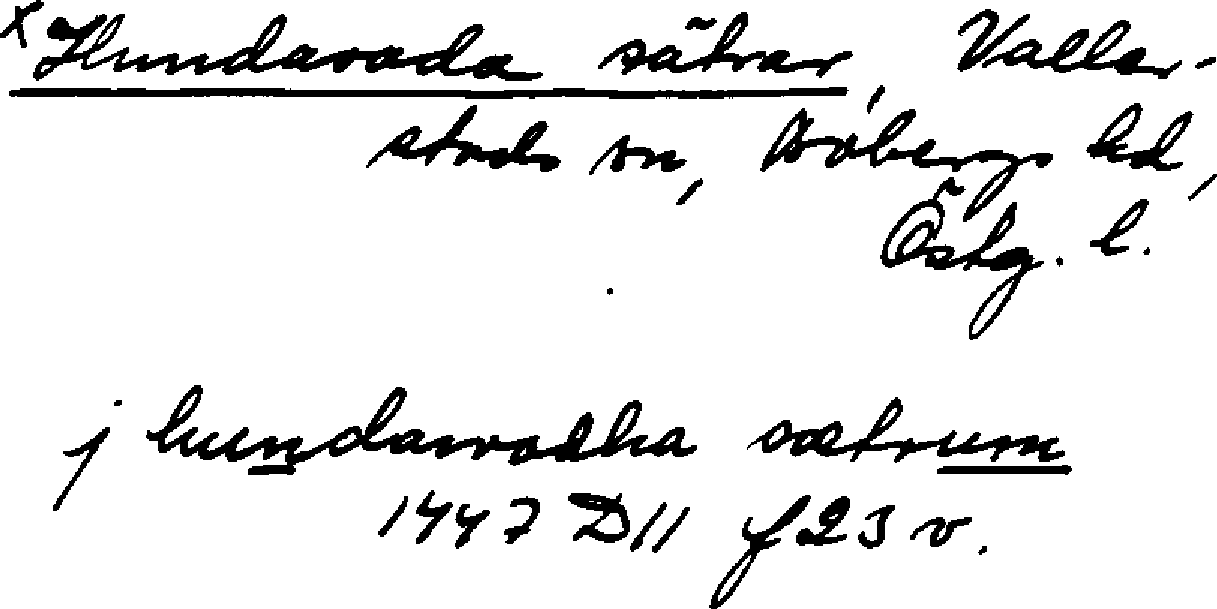 x Hundavada sätrar, Valler-
stads sn, Bobergs hd,
Östg. l.
j hundawadha sætrum
1447 D11 f 23 v.